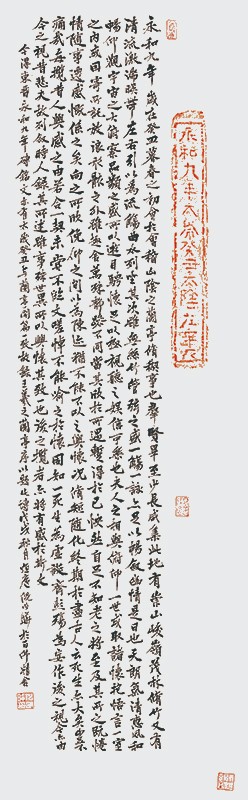 永和九年太歲癸丑太陰在
永和九年歲在癸丑暮春之初會于會稽山陰之蘭亭脩稧事也羣賢畢至少長咸集此地有崇山峻領茂林脩竹又有
清流激湍暎帶左右引以為流觴曲水列坐其次雖無絲竹管弦之盛一觴一詠亦足以暢敘幽情是日也天朗氣清惠風和
暢仰觀宇宙之大俯察品類之盛所以遊目騁懷足以極視聽之娛信可樂也夫人之相與俯仰一世或取諸懷抱悟言一室
之內或因寄所託放浪形骸之外雖趣舍萬殊靜躁不同當其欣於所遇暫得於己快然自足不知老之將至及其所之既惓
情隨事遷感慨係之矣向之所欣俛仰之間以為陳迹猶不能不以之興懷況脩短隨化終期於盡古人云死生亦大矣豈不
痛哉每攬昔人興感之由若合一契未嘗不臨文嗟悼不能喻之於懷固知一死生為虛誕齊彭殤為妄作後之視今亦由
今之視昔悲夫故列敘時人錄其所述雖世殊事異所以興懷其致一也後之攬者亦將有感於斯文
今得東晉永和九年磚銘文亦有太歲癸丑與蘭亭同王羲之蘭亭序以